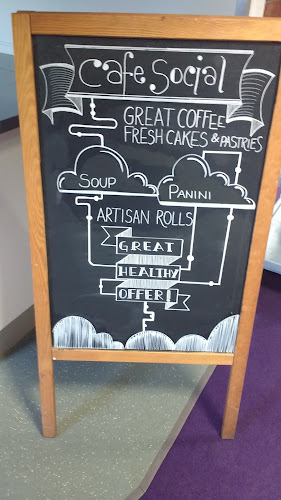 Cafe Social
GREAT COFFEE
FRESH CAKES & PASTRIES
SOUP
PANINI
ARTISAN ROLLS
GREAT
HEALTHY
OFFER!